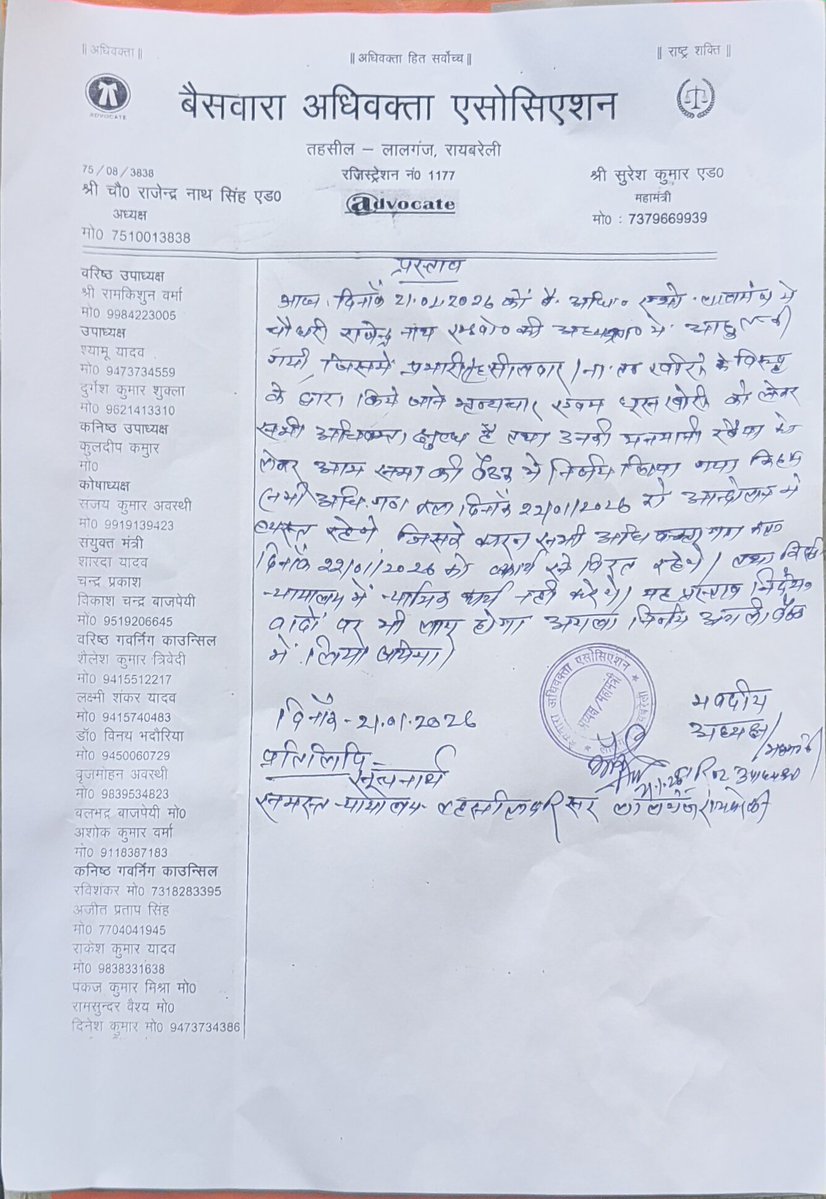 || अधिवक्ता ||
|| अधिवक्ता हित सर्वोच्च ||
|| राष्ट्र शक्ति ||
ADVOCATE
बैसवारा अधिवक्ता एसोसिएशन
तहसील – लालगंज, रायबरेली
75/08/3838
रजिस्ट्रेशन नं० 1177
श्री चौ० राजेन्द्र नाथ सिंह एड०
अध्यक्ष
मो० 7510013838
advocate
श्री सुरेश कुमार एड०
महामंत्री
मो० : 7379669939
वरिष्ठ उपाध्यक्ष
श्री रामकिशुन वर्मा
मो० 9984223005
उपाध्यक्ष
श्यामू यादव
मो० 9473734559
दुर्गेश कुमार शुक्ला
मो० 9621413310
कनिष्ठ उपाध्यक्ष
कुलदीप कमुार
मो०
कोषाध्यक्ष
सजय कुमार अवस्थी
मो० 9919139423
सयुक्त मंत्री
शारदा यादव
चन्द्र प्रकाश
विकाश चन्द्र बाजपेयी
मो० 9519206645
वरिष्ठ गवर्निंग काउन्सिल
शैलेश कुमार त्रिवेदी
मो० 9415512217
लक्ष्मी शंकर यादव
मो० 9415740483
डॉ० विनय भदौरिया
मो० 9450060729
वृजमोहन अवस्थी
मो० 9839534823
बलभद्र बाजपेयी मो०
अशोक कुमार वर्मा
मो० 9118387183
कनिष्ठ गवर्निंग काउन्सिल
रविशंकर मो० 7318283395
अजीत प्रताप सिंह
मो० 7704041945
राकेश कुमार यादव
मो० 9838331638
पकज कुमार मिश्रा मो०
रामसुन्दर वैश्य मो०
दिनेश कुमार मो० 9473734386
प्रस्ताव
आज दिनाँक 21.01.2026 को बै. अधि० एसो. लालगंज मे
चौधरी राजेन्द्र नाथ एडवो० की अध्यक्षता मे आहुत की
गयी, जिसमे प्रभारी तहसीलदार / ना. के विरूद्ध
के द्वारा किये जाने एवम घूसखोरी को लेकर
सभी अधिवक्ता क्षुब्ध है तथा उनकी मनमानी रवैया को
लेकर आम सभा की बैठक मे निर्णय लिया गया कि हम
सभी अधि. गण कल दिनाँक 22/01/2026 को आन्दोलन मे
व्यस्त रहेगे जिसके कारन सभी अधिवक्ता गण
दिनाँक 22/01/2026 को कार्य से विरत रहेगे। तथा किसी
न्यायालय में न्यायिक कार्य नही करेगे। यह प्रस्ताव
वादो पर भी लागू होगा अगला निर्णय अगली बैठक
में लिया जायेगा।
दिनाँक - 21.01.2026
भवदीय
अध्यक्ष/
प्रतिलिपि
सूचनार्थ
समस्त न्यायालय तहसील परिसर लालगंज रायबरेली
बैसवारा अधिवक्ता एसोसिएशन
अध्यक्ष/महामंत्री